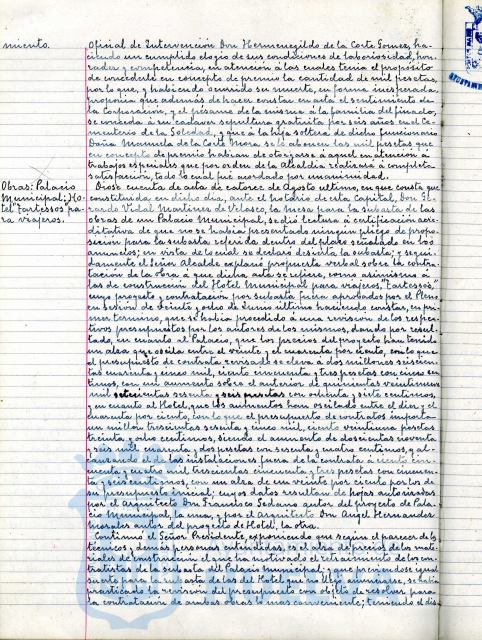 miento.
Oficial de Intervención Don Hermenegildo de la Corte Gomez, ha-
ciendo un cumplido elogio de sus condiciones de laboriosidad, hon-
radez y competencia, en atención a las cuales tenía el propósito
de concederle en concepto de premio la cantidad de mil pesetas,
por lo que, y habiendo ocurrido su muerte, en forma inesperada,
proponía que además de hacer constar en acta el sentimiento de
la Corporación, y el pésame de la misma a la familia del finado,
se conceda a su cadaver sepultura gratuita por seis años en el Ce-
menterio de la Soledad, y que a la hija soltera de dicho funcionario
Doña Manuela de la Corte Mora se le abonen las mil pesetas que
en concepto de premio habian de otorgarse a aquel en atención a
trabajos especiales que por orden de la Alcaldía realizara a completa
satisfacción, todo lo cual fué acordado por unanimidad.
Obras: Palacio
Municipal; Ho-
tel "Tartessos" pa-
ra viajeros.
Diose cuenta de acta de catorce de Agosto ultimo, en que consta que
constituida en dicho día, ante el notario de esta Capital, Don
Vidal Martinez de Velasco, la mesa para la subasta de las
obras de un Palacio Municipal, se dió lectura a certificación acre-
ditativa de que no se había presentado ningún pliego de propo-
sición para la subasta referida dentro del plazo señalado en los
anuncios; en vista de lo cual se declaró desierta la subasta; y segui-
damente el Señor Alcalde explanó propuesta verbal sobre la contra-
tación de la obra a que dicha acta se refiere, como asimismo a
las de construcción del Hotel Municipal para viajeros, "Tartessos",
cuyo proyecto y contratación por subasta fueron aprobados por el Pleno
en sesión de veinte y ocho de Junio último haciendo constar, en pri-
mer termino, que se había procedido a una revisión de los respec-
tivos presupuestos por los autores de los mismos, dando por resul-
tado, en cuanto al Palacio, que los precios del proyecto han tenido
un alza que oscila entre el veinte y el cuarenta por ciento, con lo que
el presupuesto de contrata revisado se eleva a dos millones seiscien-
tas cuarenta y cinco mil, ciento cincuenta y tres pesetas con cinco cen-
timos, con un aumento sobre el anterior de quinientas veintinueve
mil setecientas sesenta y seis pesetas con ochenta y siete centimos,
y en cuanto al Hotel, que los aumentos han oscilado entre el diez y el
cuarenta por ciento, con lo que el presupuesto de contratos importa
un millón trescientas sesenta y cinco mil, ciento veintiuna pesetas
treinta y ocho centimos, siendo el aumento de doscientas noventa
y seis mil cuarenta y dos pesetas con sesenta y cuatro centimos, y al-
canzando el de las instalaciones fuera de la contrata a ciento cin-
cuenta y cuatro mil trescientas cincuenta y tres pesetas con cincuen-
ta y seis centimos, con un alza de un veinte por ciento por los de
su presupuesto inicial; cuyos datos resultan de hojas autorizadas
por el Arquitecto Don Francisco Sedano autor del proyecto de Pala-
cio Municipal, la una, y por el Arquitecto Don Angel Hernandez
Morales autor del proyecto de Hotel, la otra.
Continuó el Señor Presidente, exponiendo que segun el parecer de los
técnicos y demás personas entendidas, es el alza de precios de los mate-
riales de construcción la que ha motivado el retraimiento de los con-
tratistas de la subasta del Palacio Municipal; y que previendose igual
suerte para la subasta de las del Hotel que no llegó anunciarse, se había
practicado la revisión del presupuesto con objeto de resolver para
la contratación de ambas obras lo mas conveniente; teniendo el dis-